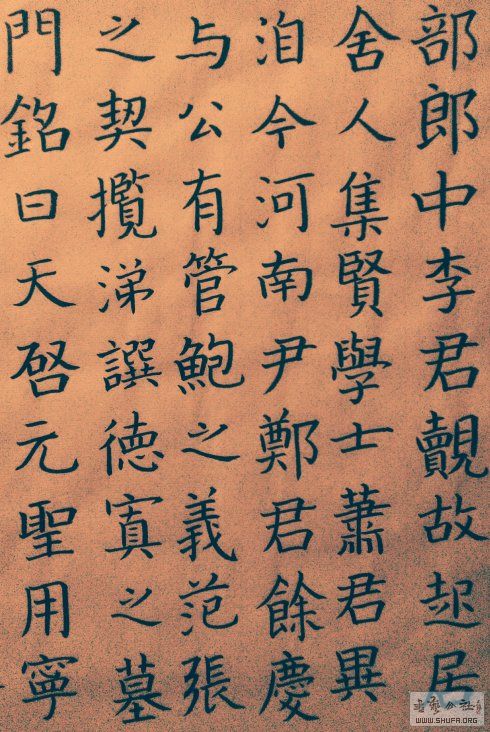 部郎中李君覿故起居
舍人集賢學士蕭君異
洎今河南尹鄭君餘慶
与公有管鮑之義范張
之契攬涕譔德寘之墓
門銘曰天啓元聖用寧
WWW.SHUFA.ORG